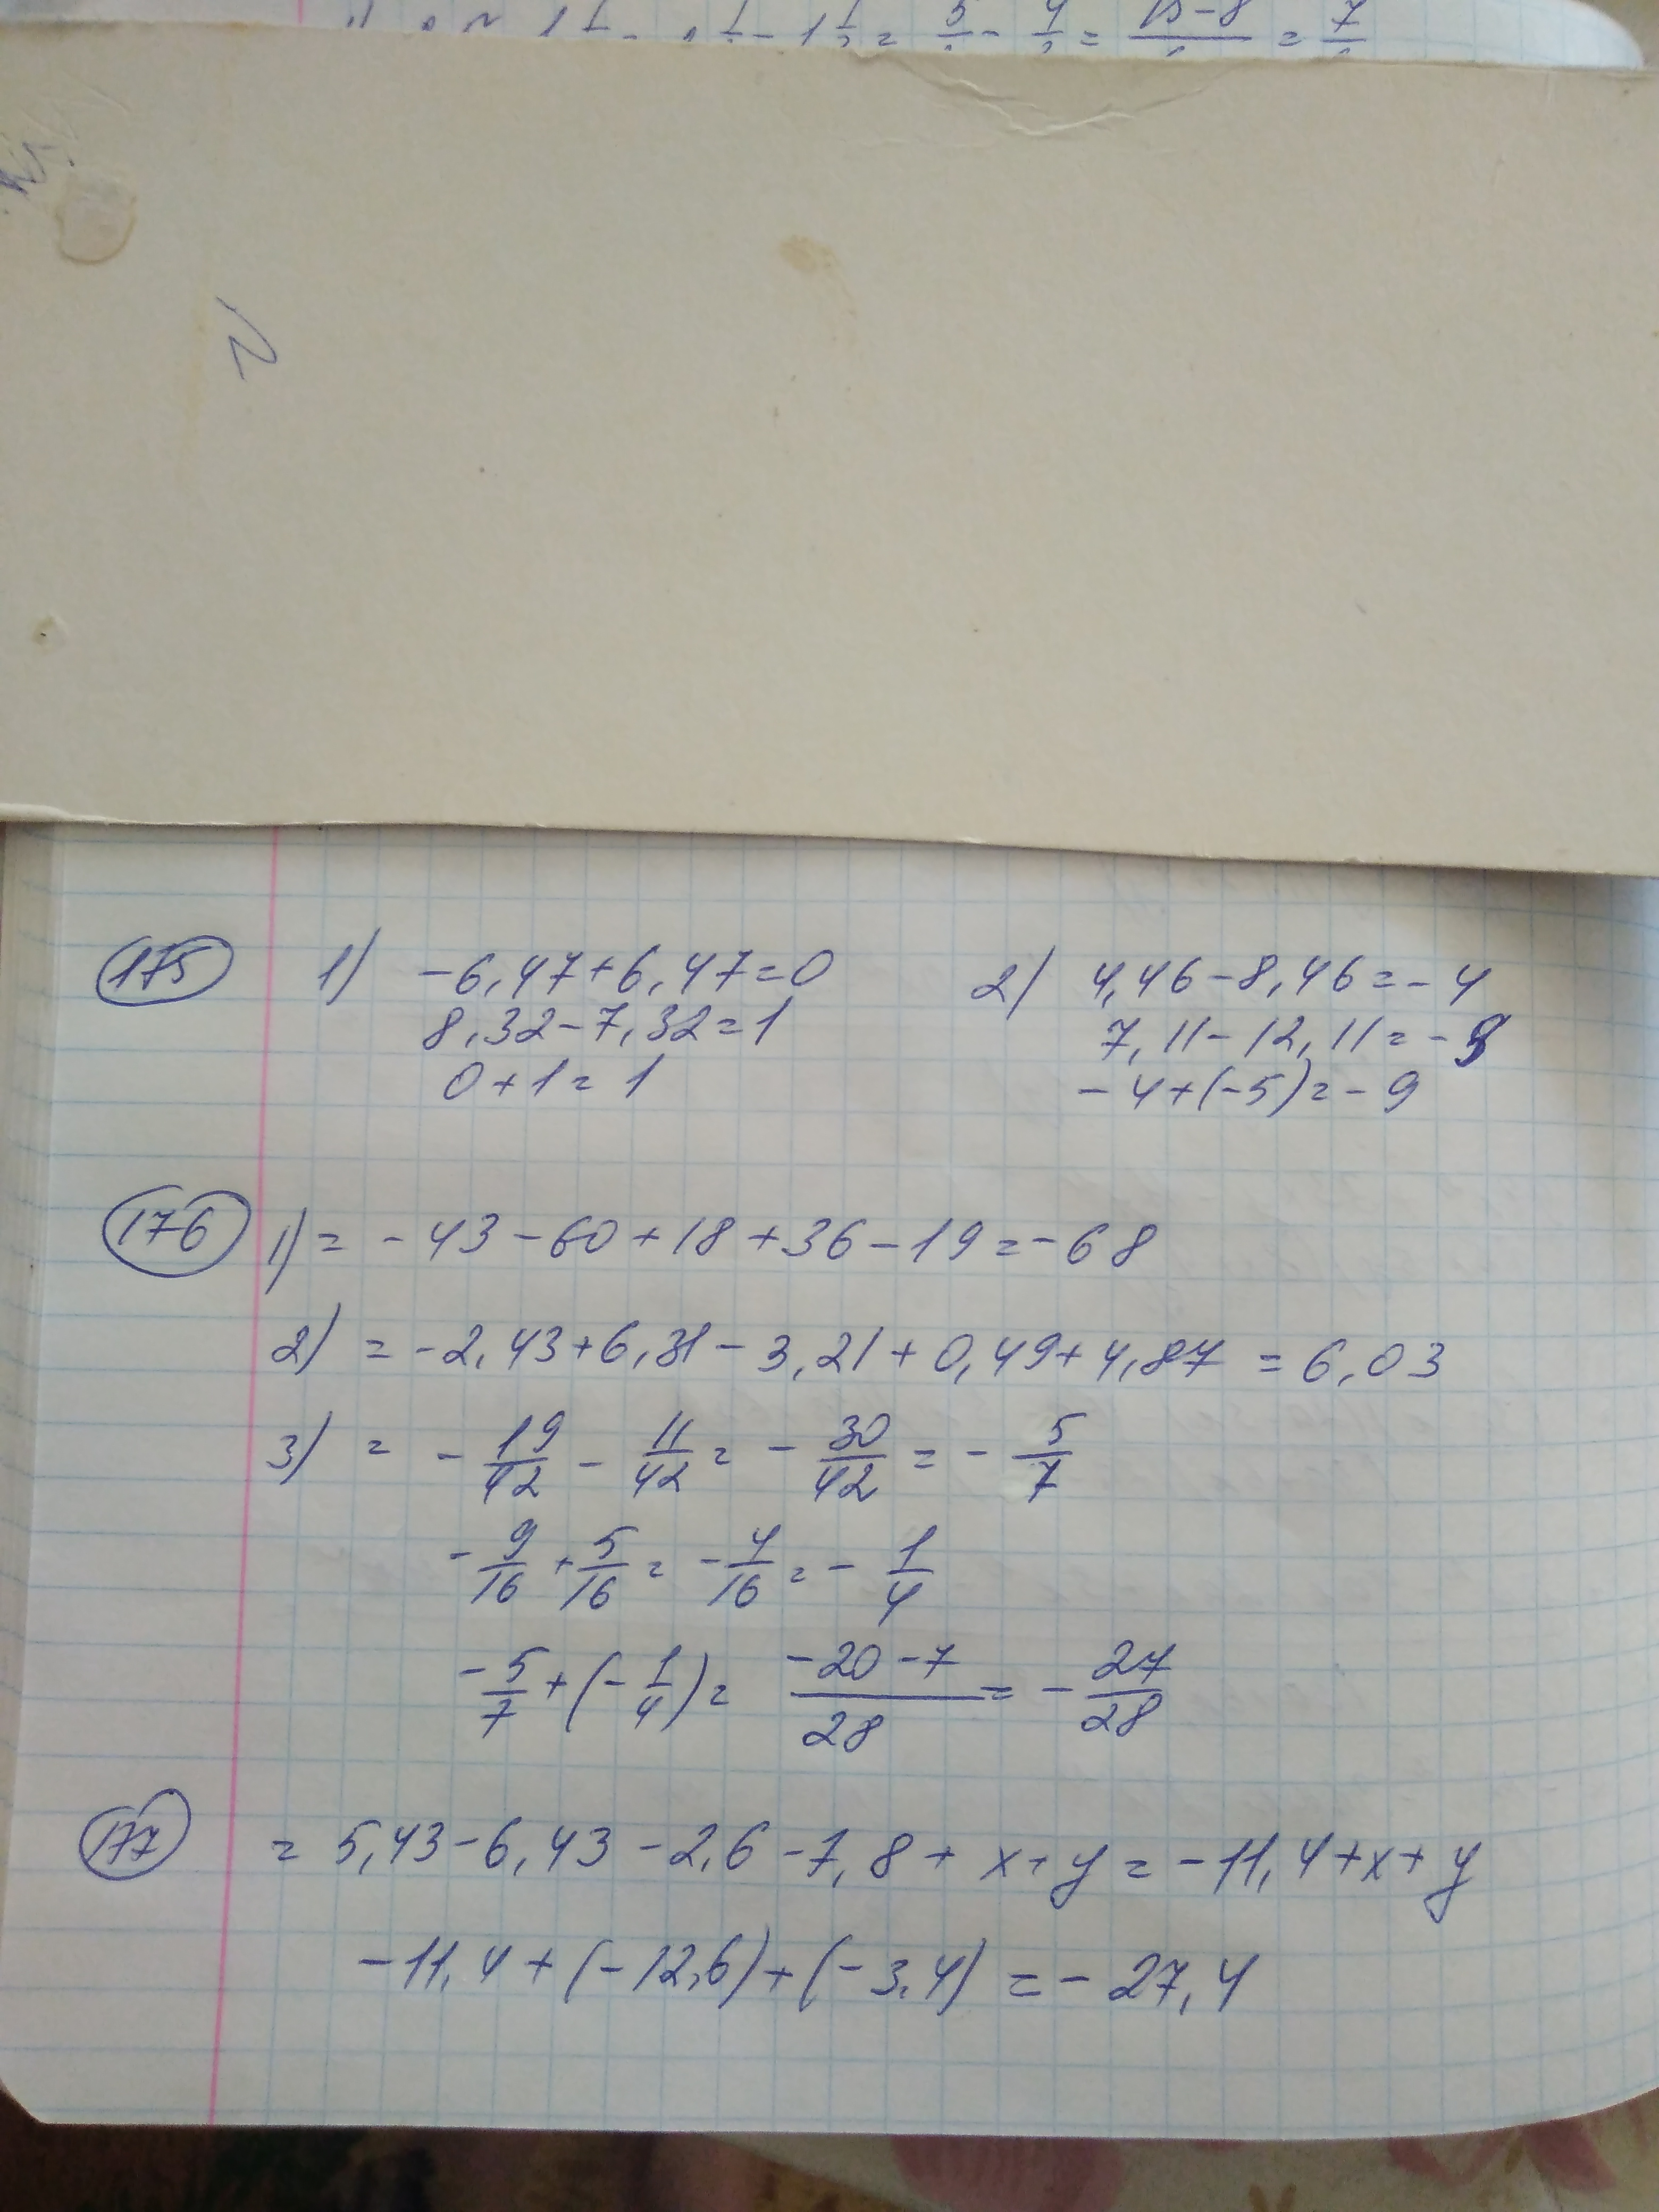 175 1) -6,47+6,47=0 2) 4,46-8,46=-4
8,32-7,32=1 7,11-12,11=-5
0+1=1 -4+(-5)=-9
176 1) = -43-60+18+36-19=-68
2) = -2,43+6,31-3,21+0,49+4,87 = 6,03
3) = -19/42 - 11/42 = -30/42 = -5/7
-9/16 + 5/16 = -4/16 = -1/4
-5/7 + (-1/4) = -20-7/28 = -27/28
177 = 5,43-6,43-2,6-7,8+x+y=-11,4+x+y
-11,4+(-12,6)+(-3,4)=-27,4